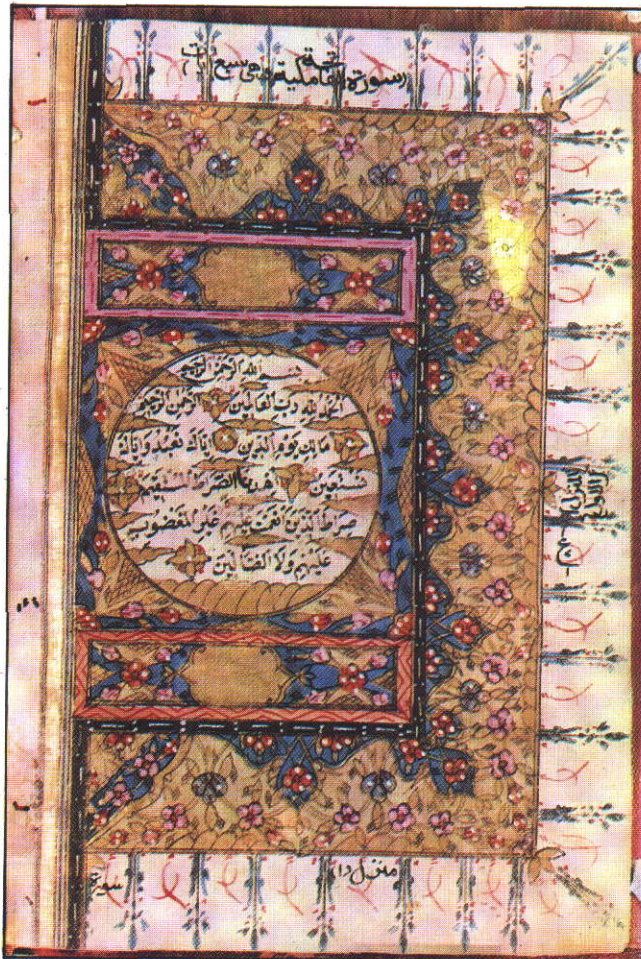 سورة الفاتحة مكية وهي سبع
بسم الله الرحمن الرحيم
الحمد لله رب العالمين الرحمن الرحيم
مالك يوم الدين اياك نعبد واياك
نستعين اهدنا الصرط المستقيم
صرط الذين انعمت عليهم غير المغضوب
عليهم ولا الضالين
المنزل
الاول
منزل (١)
سورة